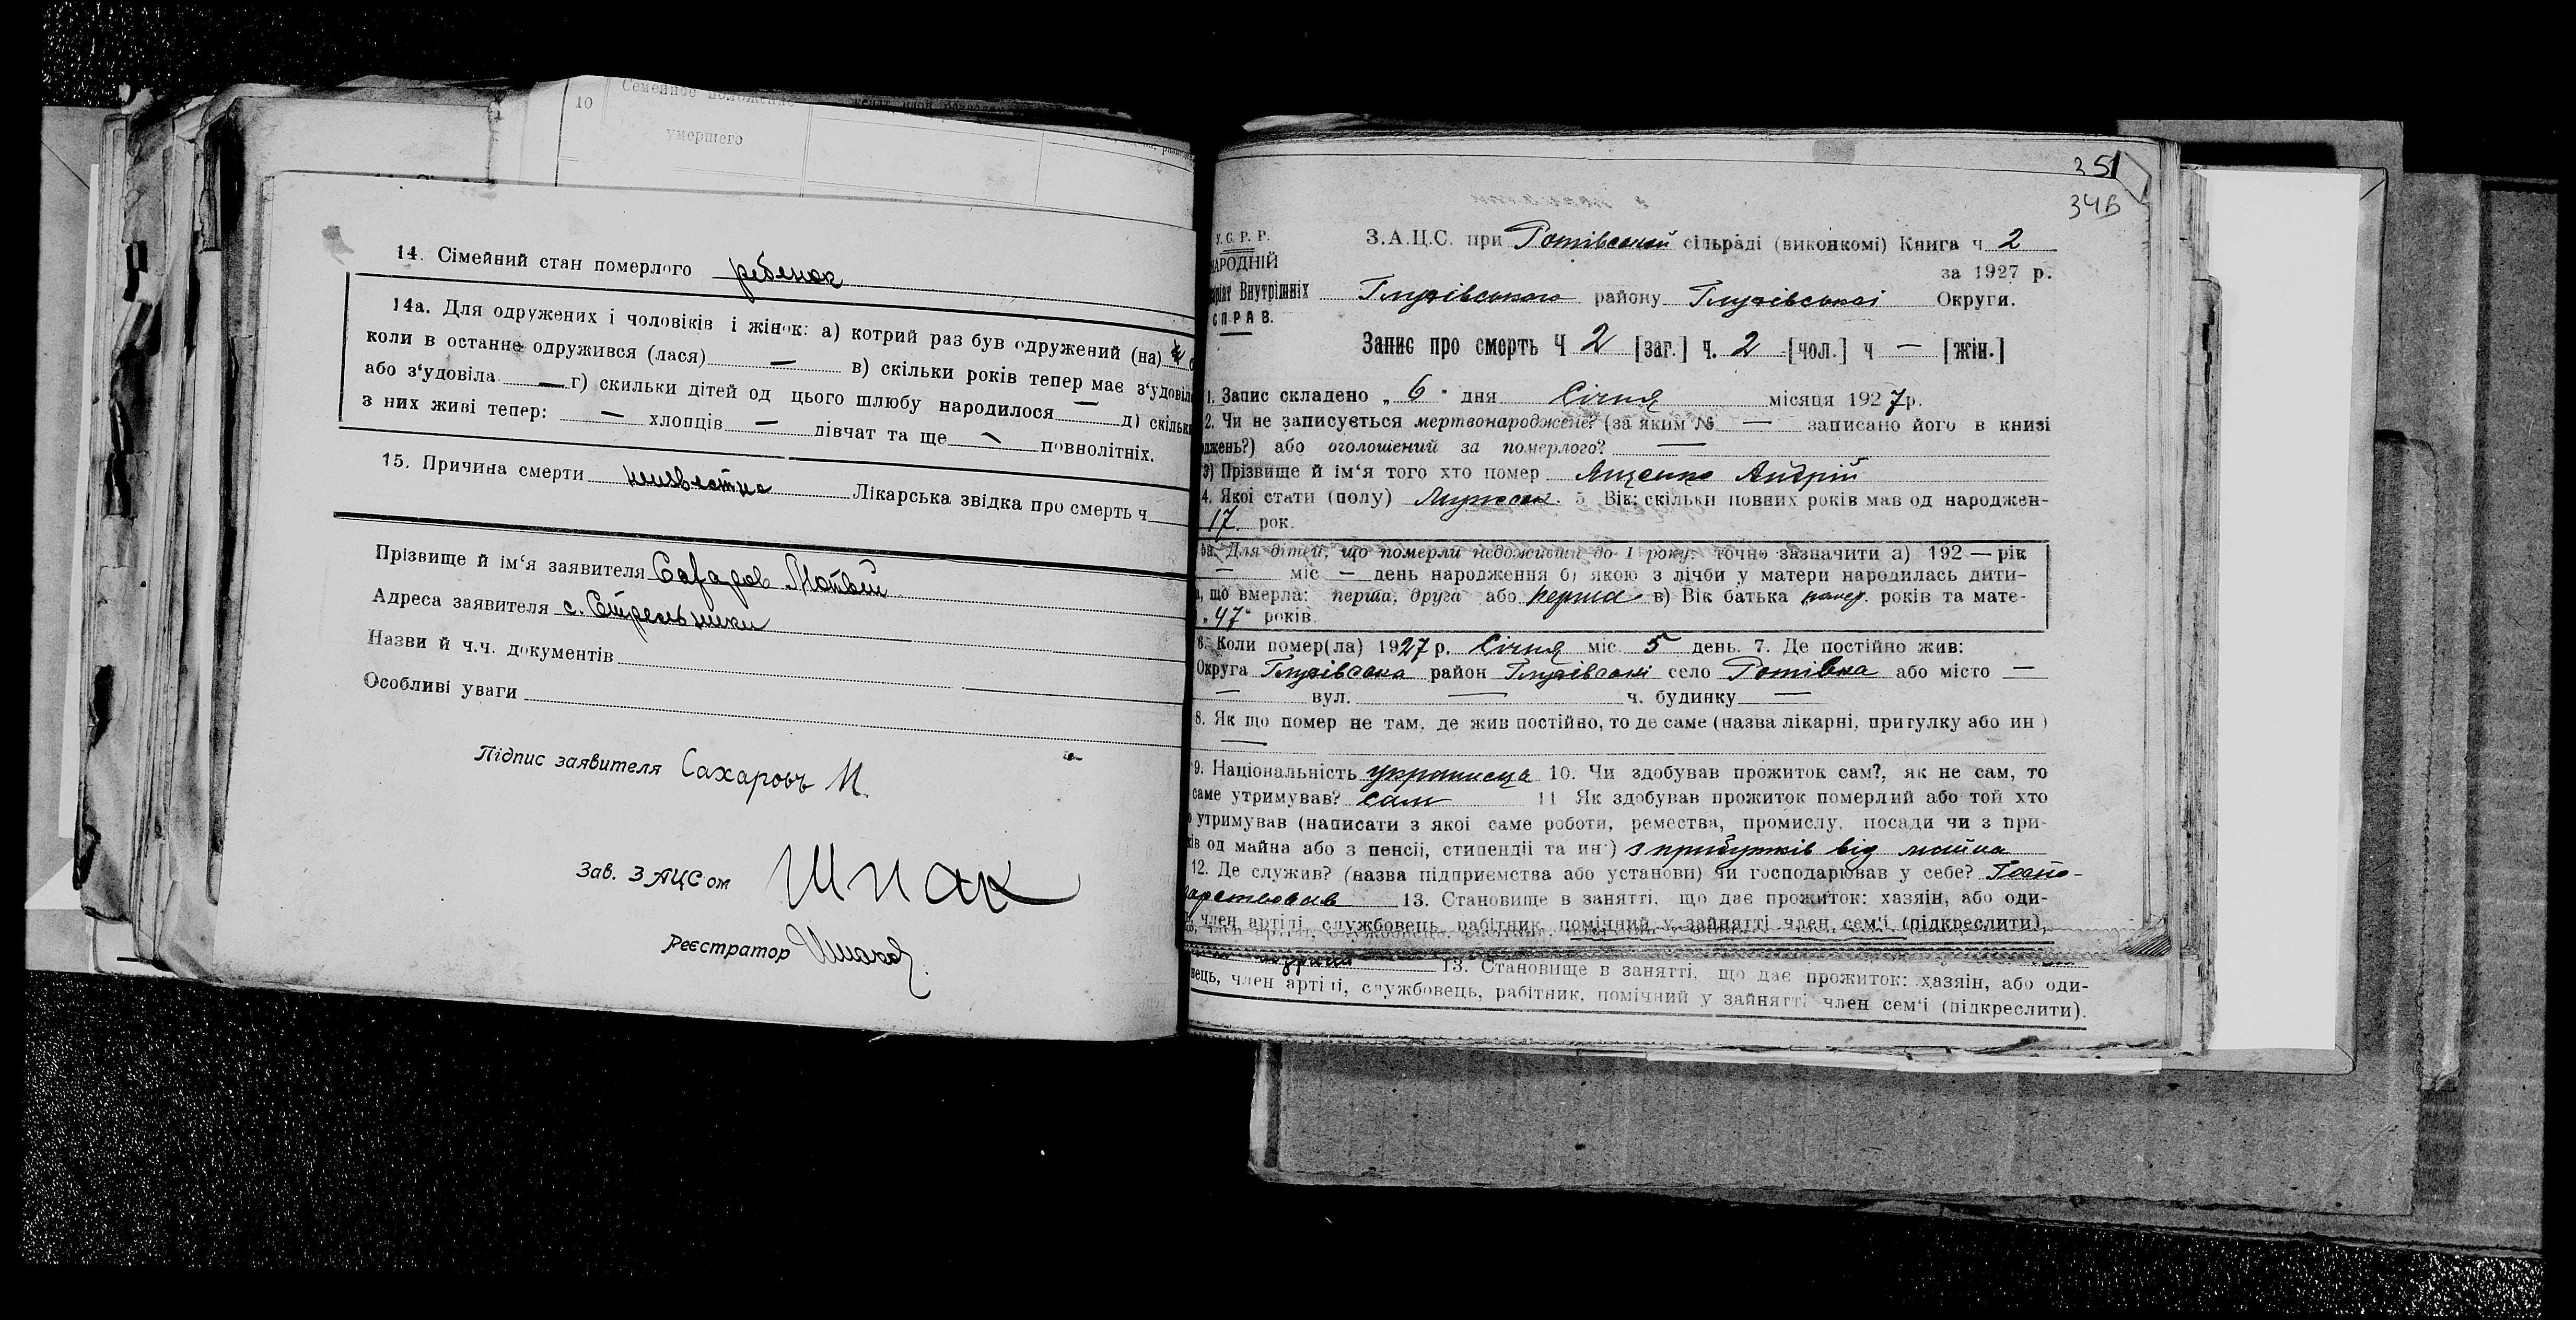 10
Семейное положение
умершего
14. Сімейний стан померлого ребенок
14а. Для одружених і чоловіків і жінок: а) котрий раз був одружений (на)
коли в останнє одружився (лася) — в) скільки років тепер має з'удовіла
або з'удовіла — г) скильки дітей од цього шлюбу народилося — д) скільки
з них живі тепер: — хлопців — дівчат та ще — повнолітніх.
15. Причина смерти неизвестно Лікарська звідка про смерть ч
Прізвище й ім'я заявителя Сахаров Матвей
Адреса заявителя с. Стрельники
Назви й ч.ч. документів
Особливі уваги
Підпис заявителя Сахаровъ М.
Зав. ЗАЦСом Шпак
Реєстратор
351
346
У. С. Р. Р.
НАРОДНІЙ
Внутрішніх
СПРАВ.
З.А.Ц.С. при Потівській сільраді (виконкомі) Книга ч 2
за 1927 р.
Глухівського району Глухівської Округи.
Запис про смерть Ч 2 [заг.] ч. 2 [чол.] ч — [жін.]
1. Запис складено „ 6 " дня Січня місяця 1927р.
2. Чи не записується мертвонароджене? (за яким № — записано його в книзі
джень?) або оголошений за померлого? —
3) Прізвище й ім'я того хто помер Ященко Андрій
4. Якої стати (полу) Мужеск. 5 Вік: скільки повних років мав од народжен-
17 рок.
5а. Для дітей, що померли недоживши до 1 року: точно зазначити а) 192 — рік
— міс — день народження б) якою з лічби у матери народилась дити-
що вмерла: перша, друга або перша в) Вік батька помер. років та мате-
„47" років.
6. Коли помер(ла) 1927 р. Січня міс. 5 день. 7. Де постійно жив:
Округа Глухівська район Глухівські село Потівка або місто —
— вул. — ч. будинку —
8. Як що помер не там, де жив постійно, то де саме (назва лікарні, притулку або ин )
—
9. Національність українець 10. Чи здобував прожиток сам?, як не сам, то
саме утримував? сам 11 Як здобував прожиток померлий або той хто
утримував (написати з якої саме роботи, ремества, промислу, посади чи з при-
ків од майна або з пенсії, стипендії та ин ) з прибутків від майна
12. Де служив? (назва підприємства або установи) чи господарював у себе? Госпо-
дарствовав 13. Становище в занятті, що дає прожиток: хазяїн, або оди-
член артілі, службовець, рабітник, помічний у зайнятті член сем'ї (підкреслити),
13. Становище в занятті, що дає прожиток: хазяїн, або оди-
нець, член артілі, службовець, рабітник, помічний у зайнятті член сем'ї (підкреслити).